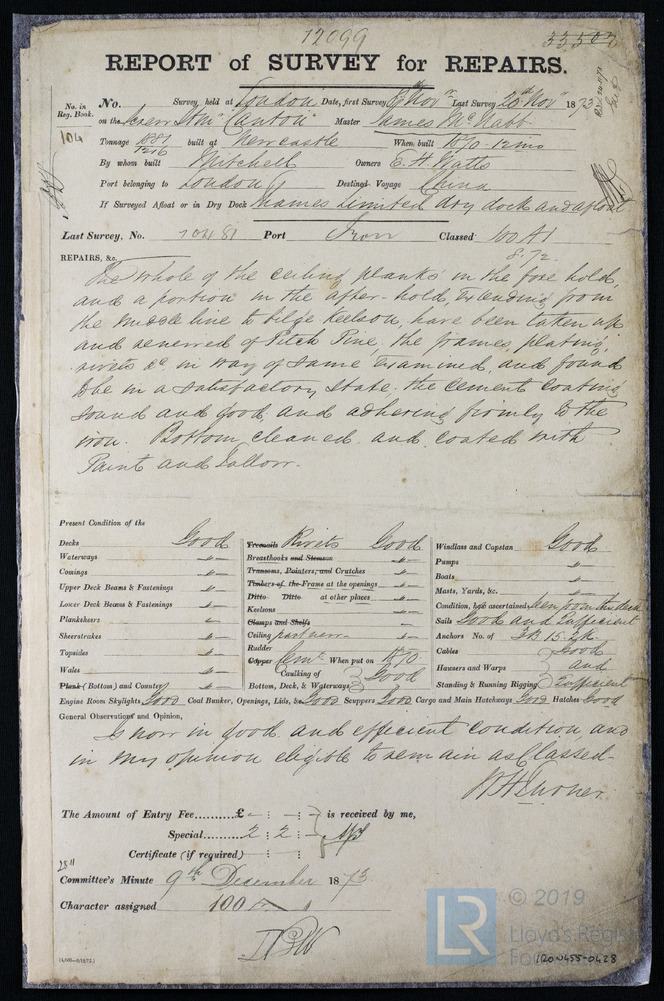 12099
33507
REPORT of SURVEY for REPAIRS.
No. in Reg. Book.
104
No. Survey held at London Date, first Survey 8th Novr Last Survey 20th Novr 1873
on the Screw Stmr "Canton" Master James McNabb
Tonnage 1881 1216 built at Newcastle When built 1870-12mo
By whom built Mitchell Owners E. H. Watts
Port belonging to London Destined Voyage China
If Surveyed Afloat or in Dry Dock Thames Limited dry dock and afloat
Last Survey, No. 10481 Port Iron Classed 100 A1
8.72
REPAIRS, &c.
The whole of the ceiling planks in the fore hold,
and a portion in the after-hold, Extending from
the middle line to bilge Keelson, have been taken up
and renewed of Pitch Pine, the frames, plating,
rivets &c in way of same Examined, and found
to be in a satisfactory state. the cement coating
sound and good, and adhering firmly to the
iron. Bottom cleaned and coated with
Paint and Tallow.
Present Condition of the
Decks Good
Waterways "
Comings "
Upper Deck Beams & Fastenings "
Lower Deck Beams & Fastenings "
Planksheers "
Sheerstrakes "
Topsides "
Wales "
Plank (Bottom) and Counter "
Treenails Rivets Good
Breasthooks and Stemson "
Transoms, Pointers, and Crutches "
Timbers of the Frame at the openings "
Ditto Ditto at other places "
Keelsons "
Clamps and Shelfs
Ceiling part new "
Rudder "
Copper Cemt When put on 1870
Caulking of Bottom, Deck, & Waterways Good
Windlass and Capstan Good
Pumps "
Boats "
Masts, Yards, &c. "
Condition, how ascertained seen from the deck
Sails Good and Sufficient
Anchors No. of 3B. 1S. 2K.
Cables Good
Hawsers and Warps and
Standing & Running Rigging Sufficient
Engine Room Skylights Good Coal Bunker, Openings, Lids, &c. Good Scuppers Good Cargo and Main Hatchways Good Hatches Good
General Observations and Opinion,
Is now in good and efficient condition, and
in my opinion eligible to remain as Classed-
W H Turner
The Amount of Entry Fee..........£ - : - : - is received by me,
Special.......... 2 : 2 : -
Certificate (if required) : :
Committee's Minute 9th December 1873
Character assigned 100 A 1
© 2019
LR
Lloyd's Register
IRON455-0428